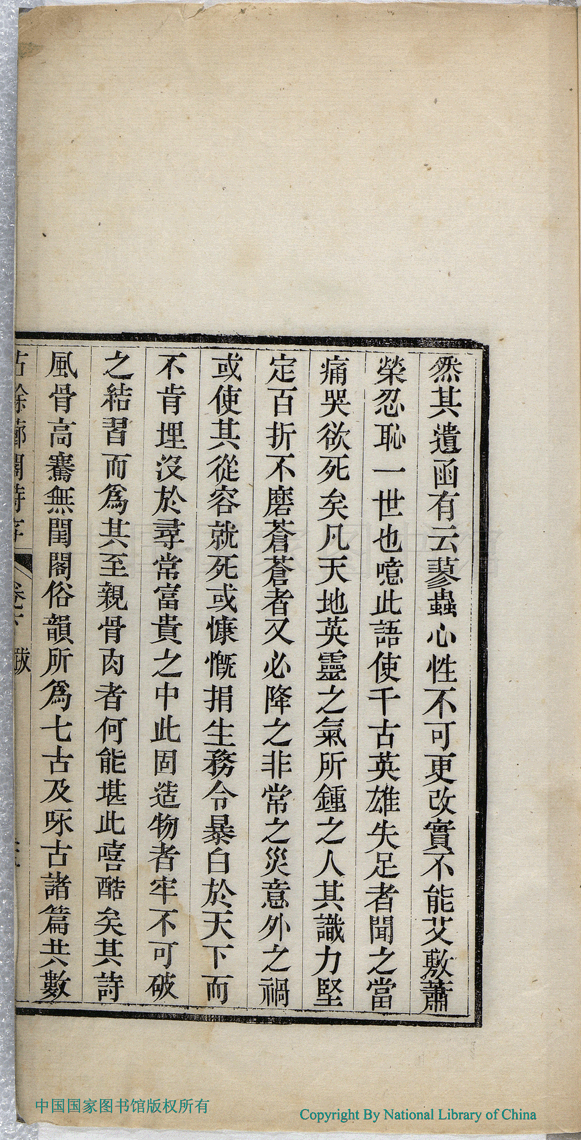 然其遺函有云蓼蟲心性不可更改實不能艾敷蕭
榮忍恥一世也噫此語使千古英雄失足者聞之當
痛哭欲死矣凡天地英靈之氣所鍾之人其識力堅
定百折不磨蒼蒼者又必降之非常之災意外之禍
或使其從容就死或慷慨捐生務令暴白於天下而
不肯埋沒於尋常富貴之中此固造物者牢不可破
之結習而為其至親骨肉者何能堪此嘻酷矣其詩
風骨高騫無閨閣俗韻所為七古及咏古諸篇共數
跋
中国国家图书馆版权所有
Copyright By National Library of China